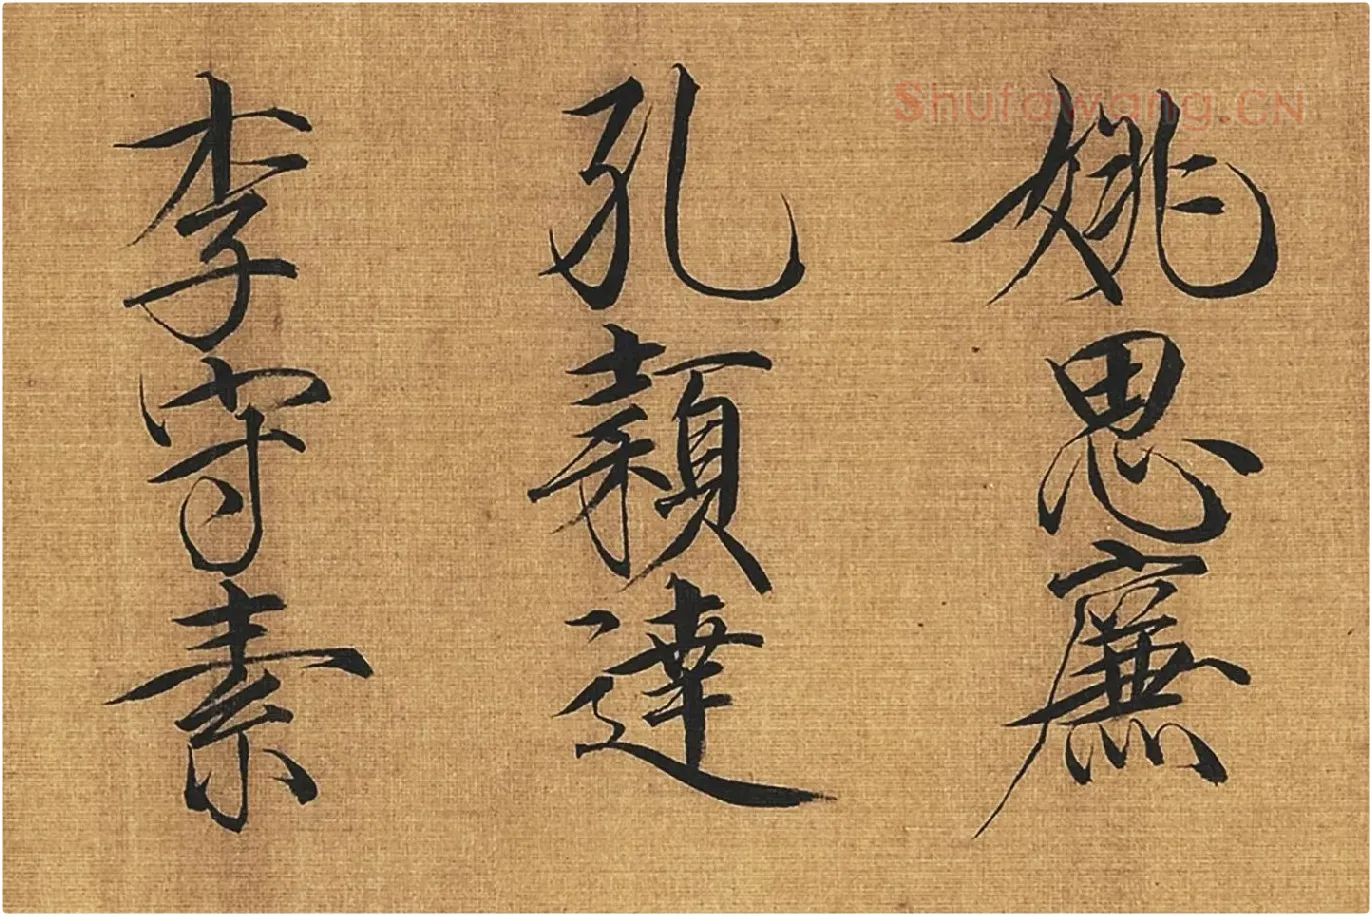 姚思廉
孔穎達
李守素
Shufawang.CN